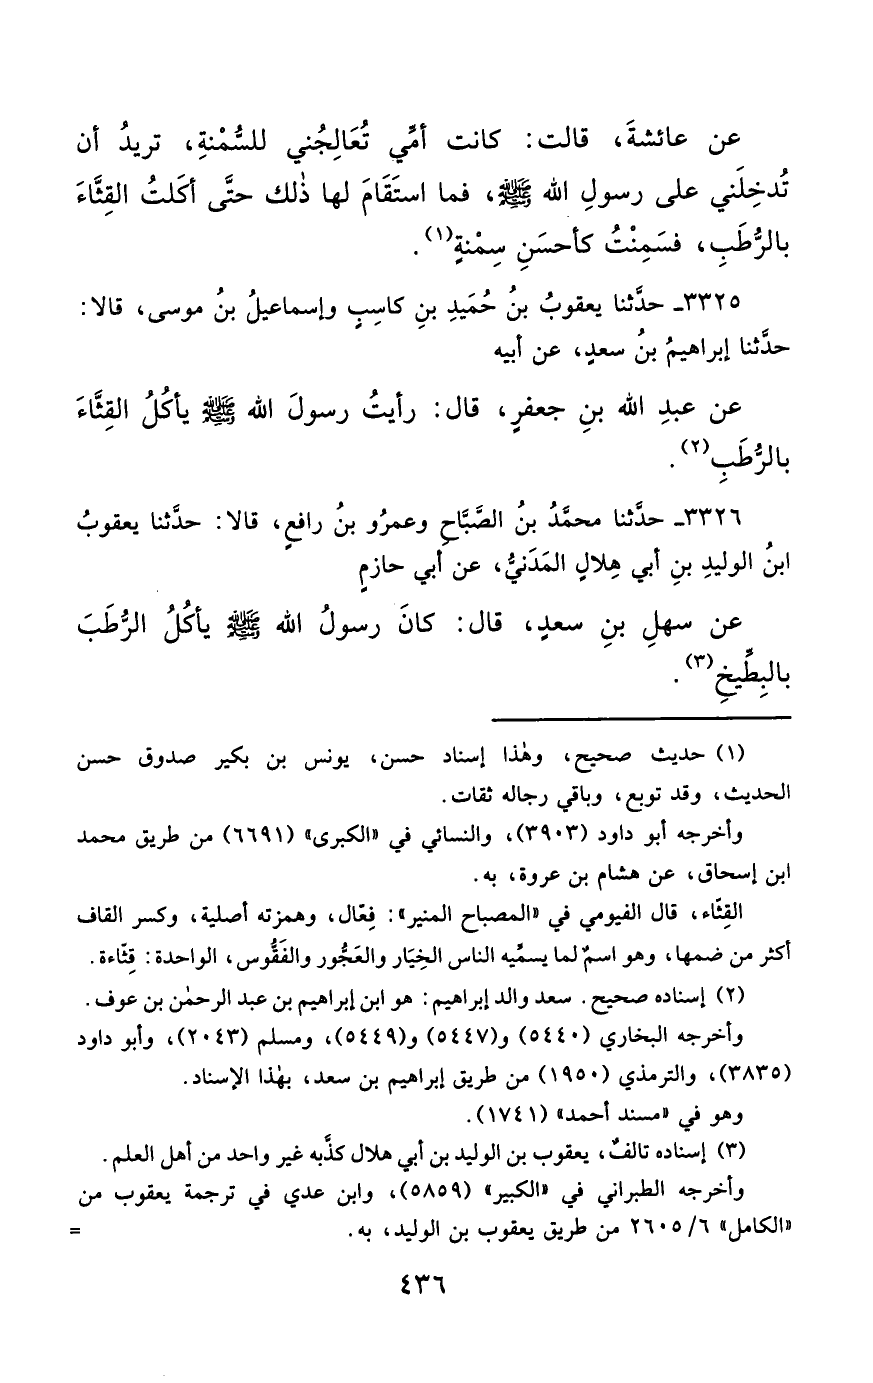 عن عائشةَ، قالت: كانت أمِّي تُعَالِجُني للسُّمْنةِ، تريدُ أن
تُدخِلَني على رسولِ الله ﷺ، فما استَقَامَ لها ذٰلك حتَّى أكَلتُ القِثَّاءَ
بالرُّطَبِ، فسَمِنْتُ كأحسَنِ سِمْنةٍ(١).
٣٣٢٥ـ حدَّثنا يعقوبُ بنُ حُمَيدِ بنِ كاسِبٍ وإسماعيلُ بنُ موسى، قالا:
حدَّثنا إبراهيمُ بنُ سعدٍ، عن أبيه
عن عبدِ الله بنِ جعفرٍ، قال: رأيتُ رسولَ الله ﷺ يأكُلُ القِثَّاءَ
بالرُّطَبِ(٢).
٣٣٢٦ـ حدَّثنا محمَّدُ بنُ الصَّبَّاحِ وعمرُو بنُ رافعٍ، قالا: حدَّثنا يعقوبُ
ابنُ الوليدِ بنِ أبي هِلالٍ المَدَنيُّ، عن أبي حازمٍ
عن سهلِ بنِ سعدٍ، قال: كانَ رسولُ الله ﷺ يأكُلُ الرُّطَبَ
بالبِطِّيخِ(٣).
(١) حديث صحيح، وهٰذا إسناد حسن، يونس بن بكير صدوق حسن
الحديث، وقد توبع، وباقي رجاله ثقات.
وأخرجه أبو داود (٣٩٠٣)، والنسائي في «الكبرى» (٦٦٩١) من طريق محمد
ابن إسحاق، عن هشام بن عروة، به.
القِثّاء، قال الفيومي في «المصباح المنير»: فِعّال، وهمزته أصلية، وكسر القاف
أكثر من ضمها، وهو اسمٌ لما يسمِّيه الناس الخِيَار والعَجُّور والفَقُّوس، الواحدة: قِثّاءة.
(٢) إسناده صحيح. سعد والد إبراهيم: هو ابن إبراهيم بن عبد الرحمٰن بن عوف.
وأخرجه البخاري (٥٤٤٠) و(٥٤٤٧) و(٥٤٤٩)، ومسلم (٢٠٤٣)، وأبو داود
(٣٨٣٥)، والترمذي (١٩٥٠) من طريق إبراهيم بن سعد، بهٰذا الإسناد.
وهو في «مسند أحمد» (١٧٤١).
(٣) إسناده تالفٌ، يعقوب بن الوليد بن أبي هلال كذَّبه غير واحد من أهل العلم.
وأخرجه الطبراني في «الكبير» (٥٨٥٩)، وابن عدي في ترجمة يعقوب من
«الكامل» ٦/ ٢٦٠٥ من طريق يعقوب بن الوليد، به. =
٤٣٦